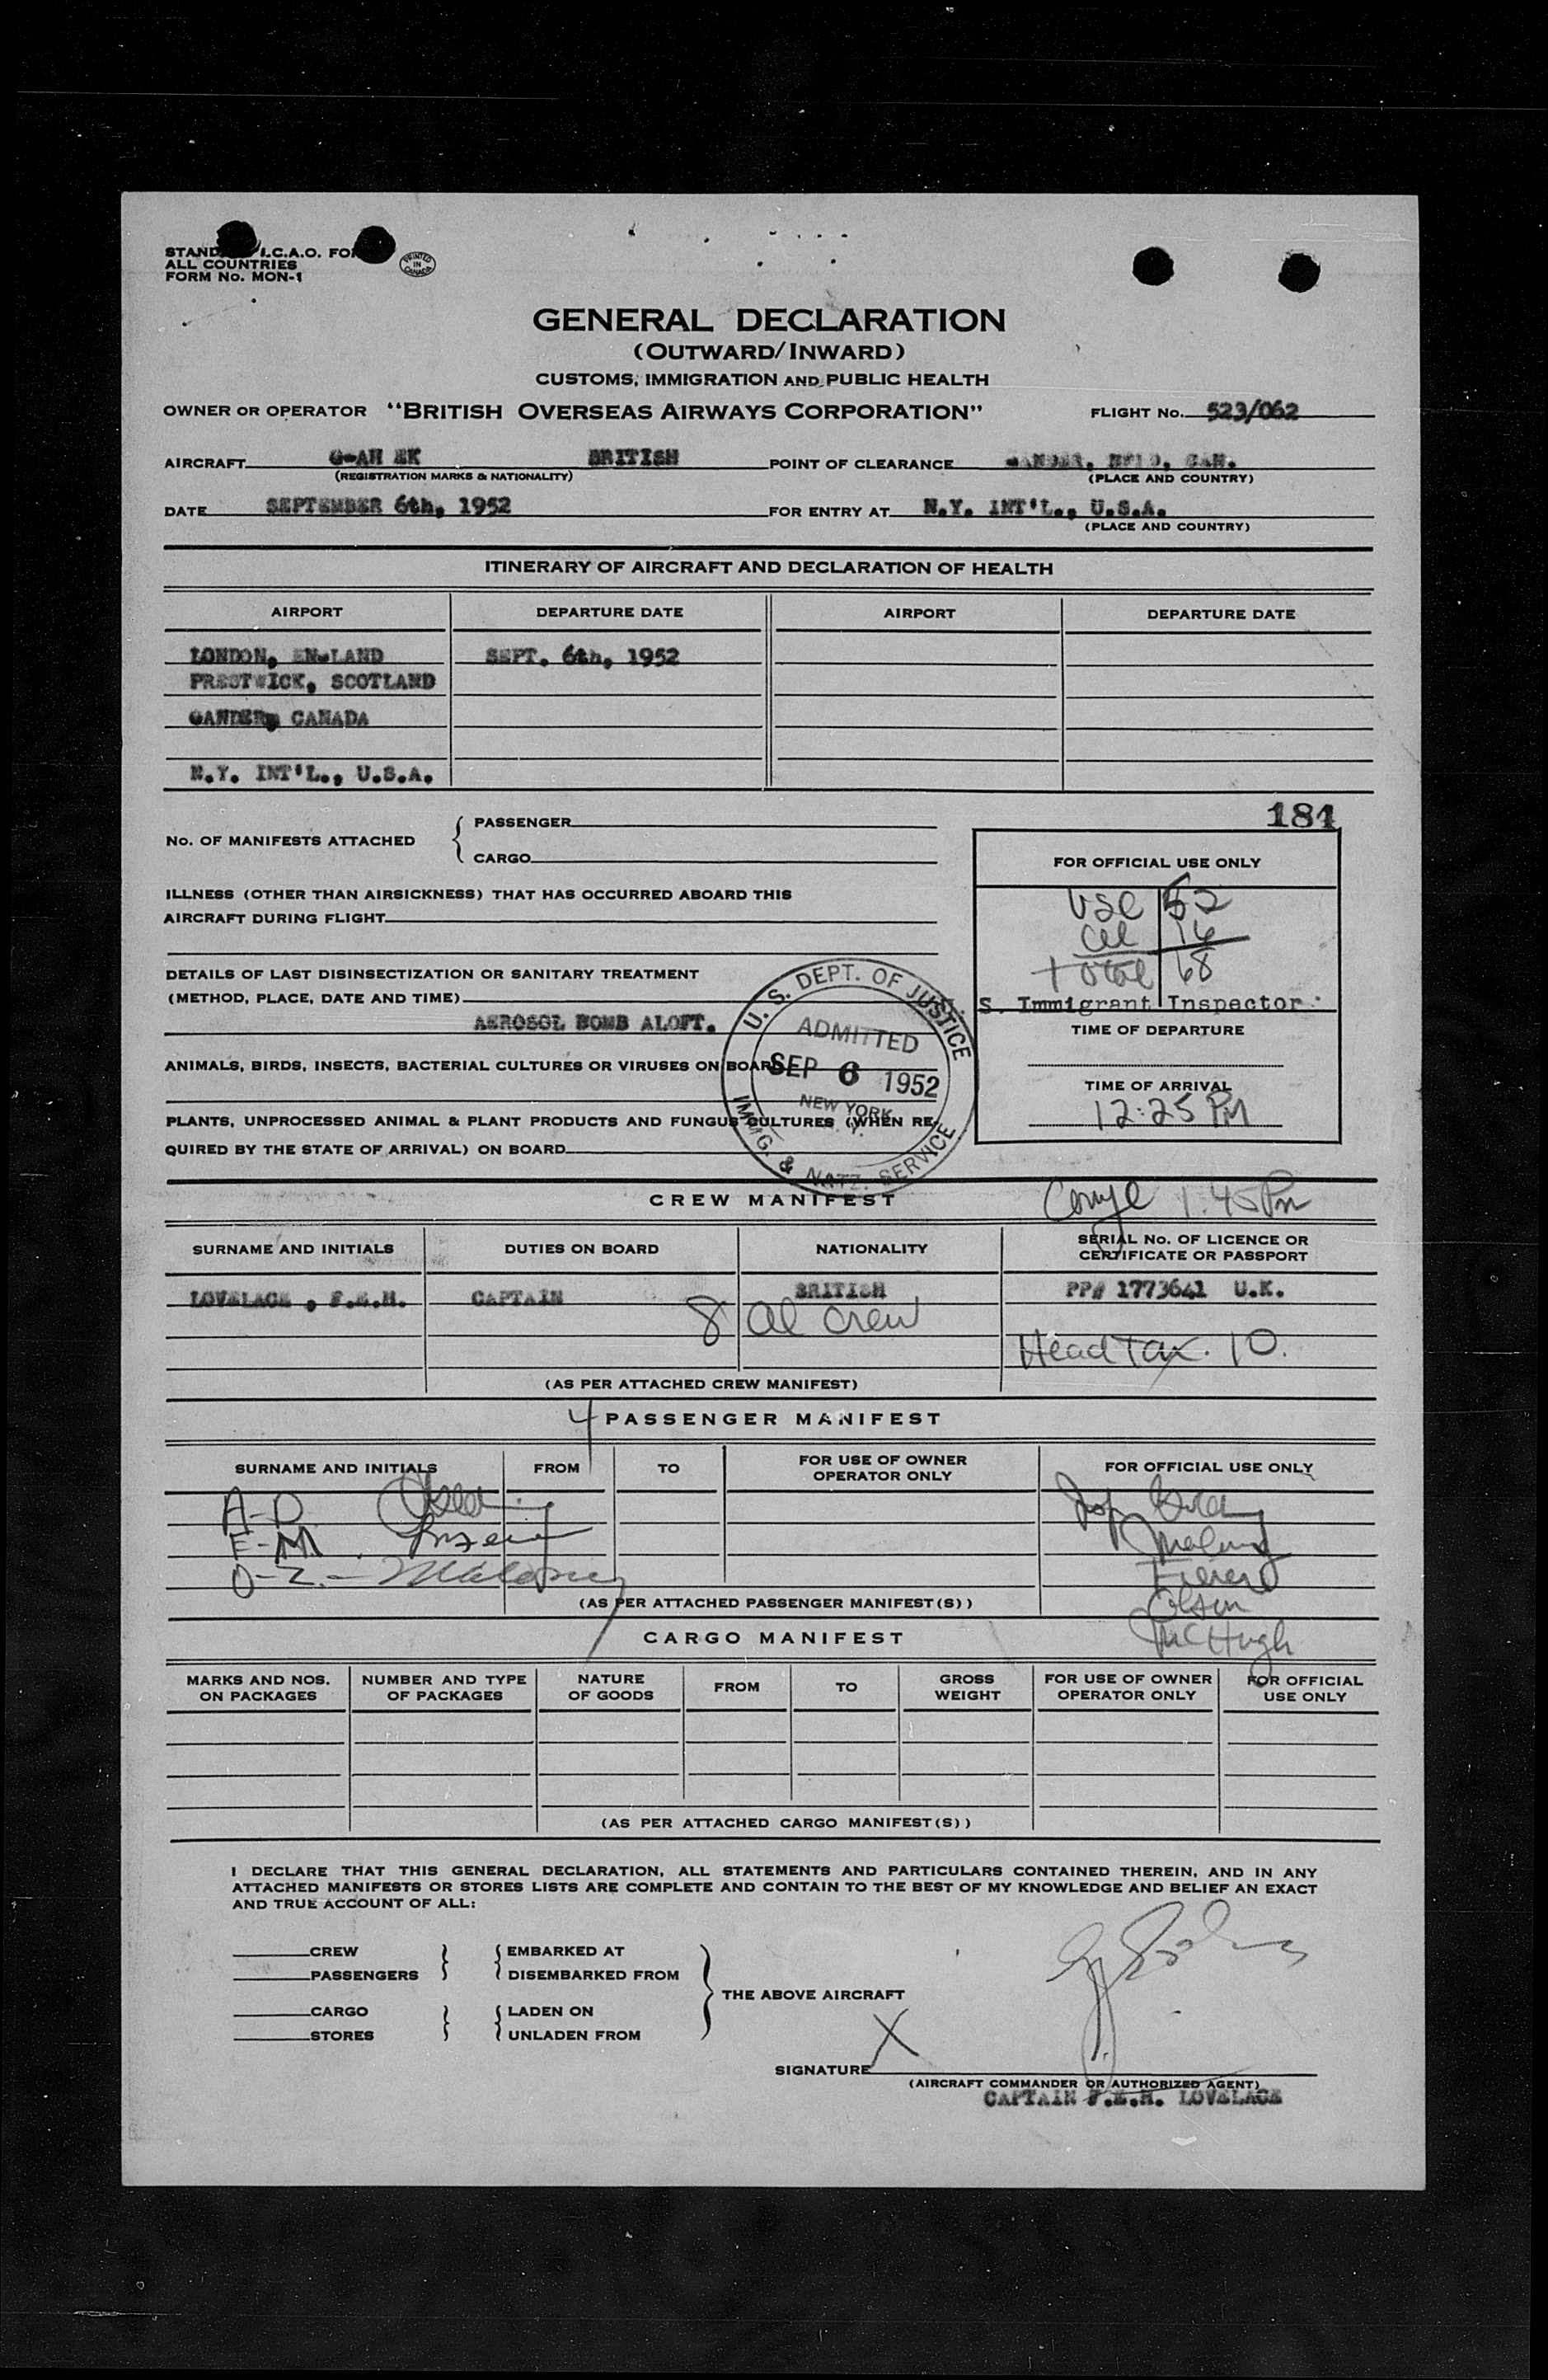 I.C.A.O.
ALL COUNTRIES
FORM No. MON-1
PRINTED IN CANADA
GENERAL DECLARATION
(OUTWARD/INWARD)
CUSTOMS, IMMIGRATION AND PUBLIC HEALTH
OWNER OR OPERATOR "BRITISH OVERSEAS AIRWAYS CORPORATION" FLIGHT No. 523/062
AIRCRAFT G-AH EK BRITISH POINT OF CLEARANCE GANDER, NFLD, CAN.
(REGISTRATION MARKS & NATIONALITY) (PLACE AND COUNTRY)
DATE SEPTEMBER 6th, 1952 FOR ENTRY AT N.Y. INT'L., U.S.A.
(PLACE AND COUNTRY)
ITINERARY OF AIRCRAFT AND DECLARATION OF HEALTH
AIRPORT DEPARTURE DATE AIRPORT DEPARTURE DATE
LONDON, ENGLAND SEPT. 6th, 1952
PRESTWICK, SCOTLAND
GANDER, CANADA
N.Y. INT'L., U.S.A.
184
No. OF MANIFESTS ATTACHED
PASSENGER
CARGO
FOR OFFICIAL USE ONLY
USC 52
al 16
total 68
S. Immigrant Inspector
TIME OF DEPARTURE
TIME OF ARRIVAL
12:25 PM
ILLNESS (OTHER THAN AIRSICKNESS) THAT HAS OCCURRED ABOARD THIS
AIRCRAFT DURING FLIGHT
DETAILS OF LAST DISINSECTIZATION OR SANITARY TREATMENT
(METHOD, PLACE, DATE AND TIME)
AEROSOL BOMB ALOFT.
ANIMALS, BIRDS, INSECTS, BACTERIAL CULTURES OR VIRUSES ON BOARD
PLANTS, UNPROCESSED ANIMAL & PLANT PRODUCTS AND FUNGUS CULTURES (WHEN RE-
QUIRED BY THE STATE OF ARRIVAL) ON BOARD
U. S. DEPT. OF JUSTICE
ADMITTED
SEP 6 1952
NEW YORK
N. Y.
IMMIG. & NATZ. SERVICE
CREW MANIFEST
1:45 Pm
SURNAME AND INITIALS DUTIES ON BOARD NATIONALITY SERIAL No. OF LICENCE OR
CERTIFICATE OR PASSPORT
LOVELACE , F.E.H. CAPTAIN BRITISH PP# 1773641 U.K.
8 al crew
Head Tax. 10.
(AS PER ATTACHED CREW MANIFEST)
4 PASSENGER MANIFEST
SURNAME AND INITIALS FROM TO FOR USE OF OWNER
OPERATOR ONLY FOR OFFICIAL USE ONLY
A-D
E-M
O-Z. -
Olson
McHugh
(AS PER ATTACHED PASSENGER MANIFEST(S))
CARGO MANIFEST
MARKS AND NOS.
ON PACKAGES NUMBER AND TYPE
OF PACKAGES NATURE
OF GOODS FROM TO GROSS
WEIGHT FOR USE OF OWNER
OPERATOR ONLY FOR OFFICIAL
USE ONLY
(AS PER ATTACHED CARGO MANIFEST(S))
I DECLARE THAT THIS GENERAL DECLARATION, ALL STATEMENTS AND PARTICULARS CONTAINED THEREIN, AND IN ANY
ATTACHED MANIFESTS OR STORES LISTS ARE COMPLETE AND CONTAIN TO THE BEST OF MY KNOWLEDGE AND BELIEF AN EXACT
AND TRUE ACCOUNT OF ALL:
CREW EMBARKED AT
PASSENGERS DISEMBARKED FROM
THE ABOVE AIRCRAFT
CARGO LADEN ON
STORES UNLADEN FROM
SIGNATURE X
(AIRCRAFT COMMANDER OR AUTHORIZED AGENT)
CAPTAIN F.E.H. LOVELACE